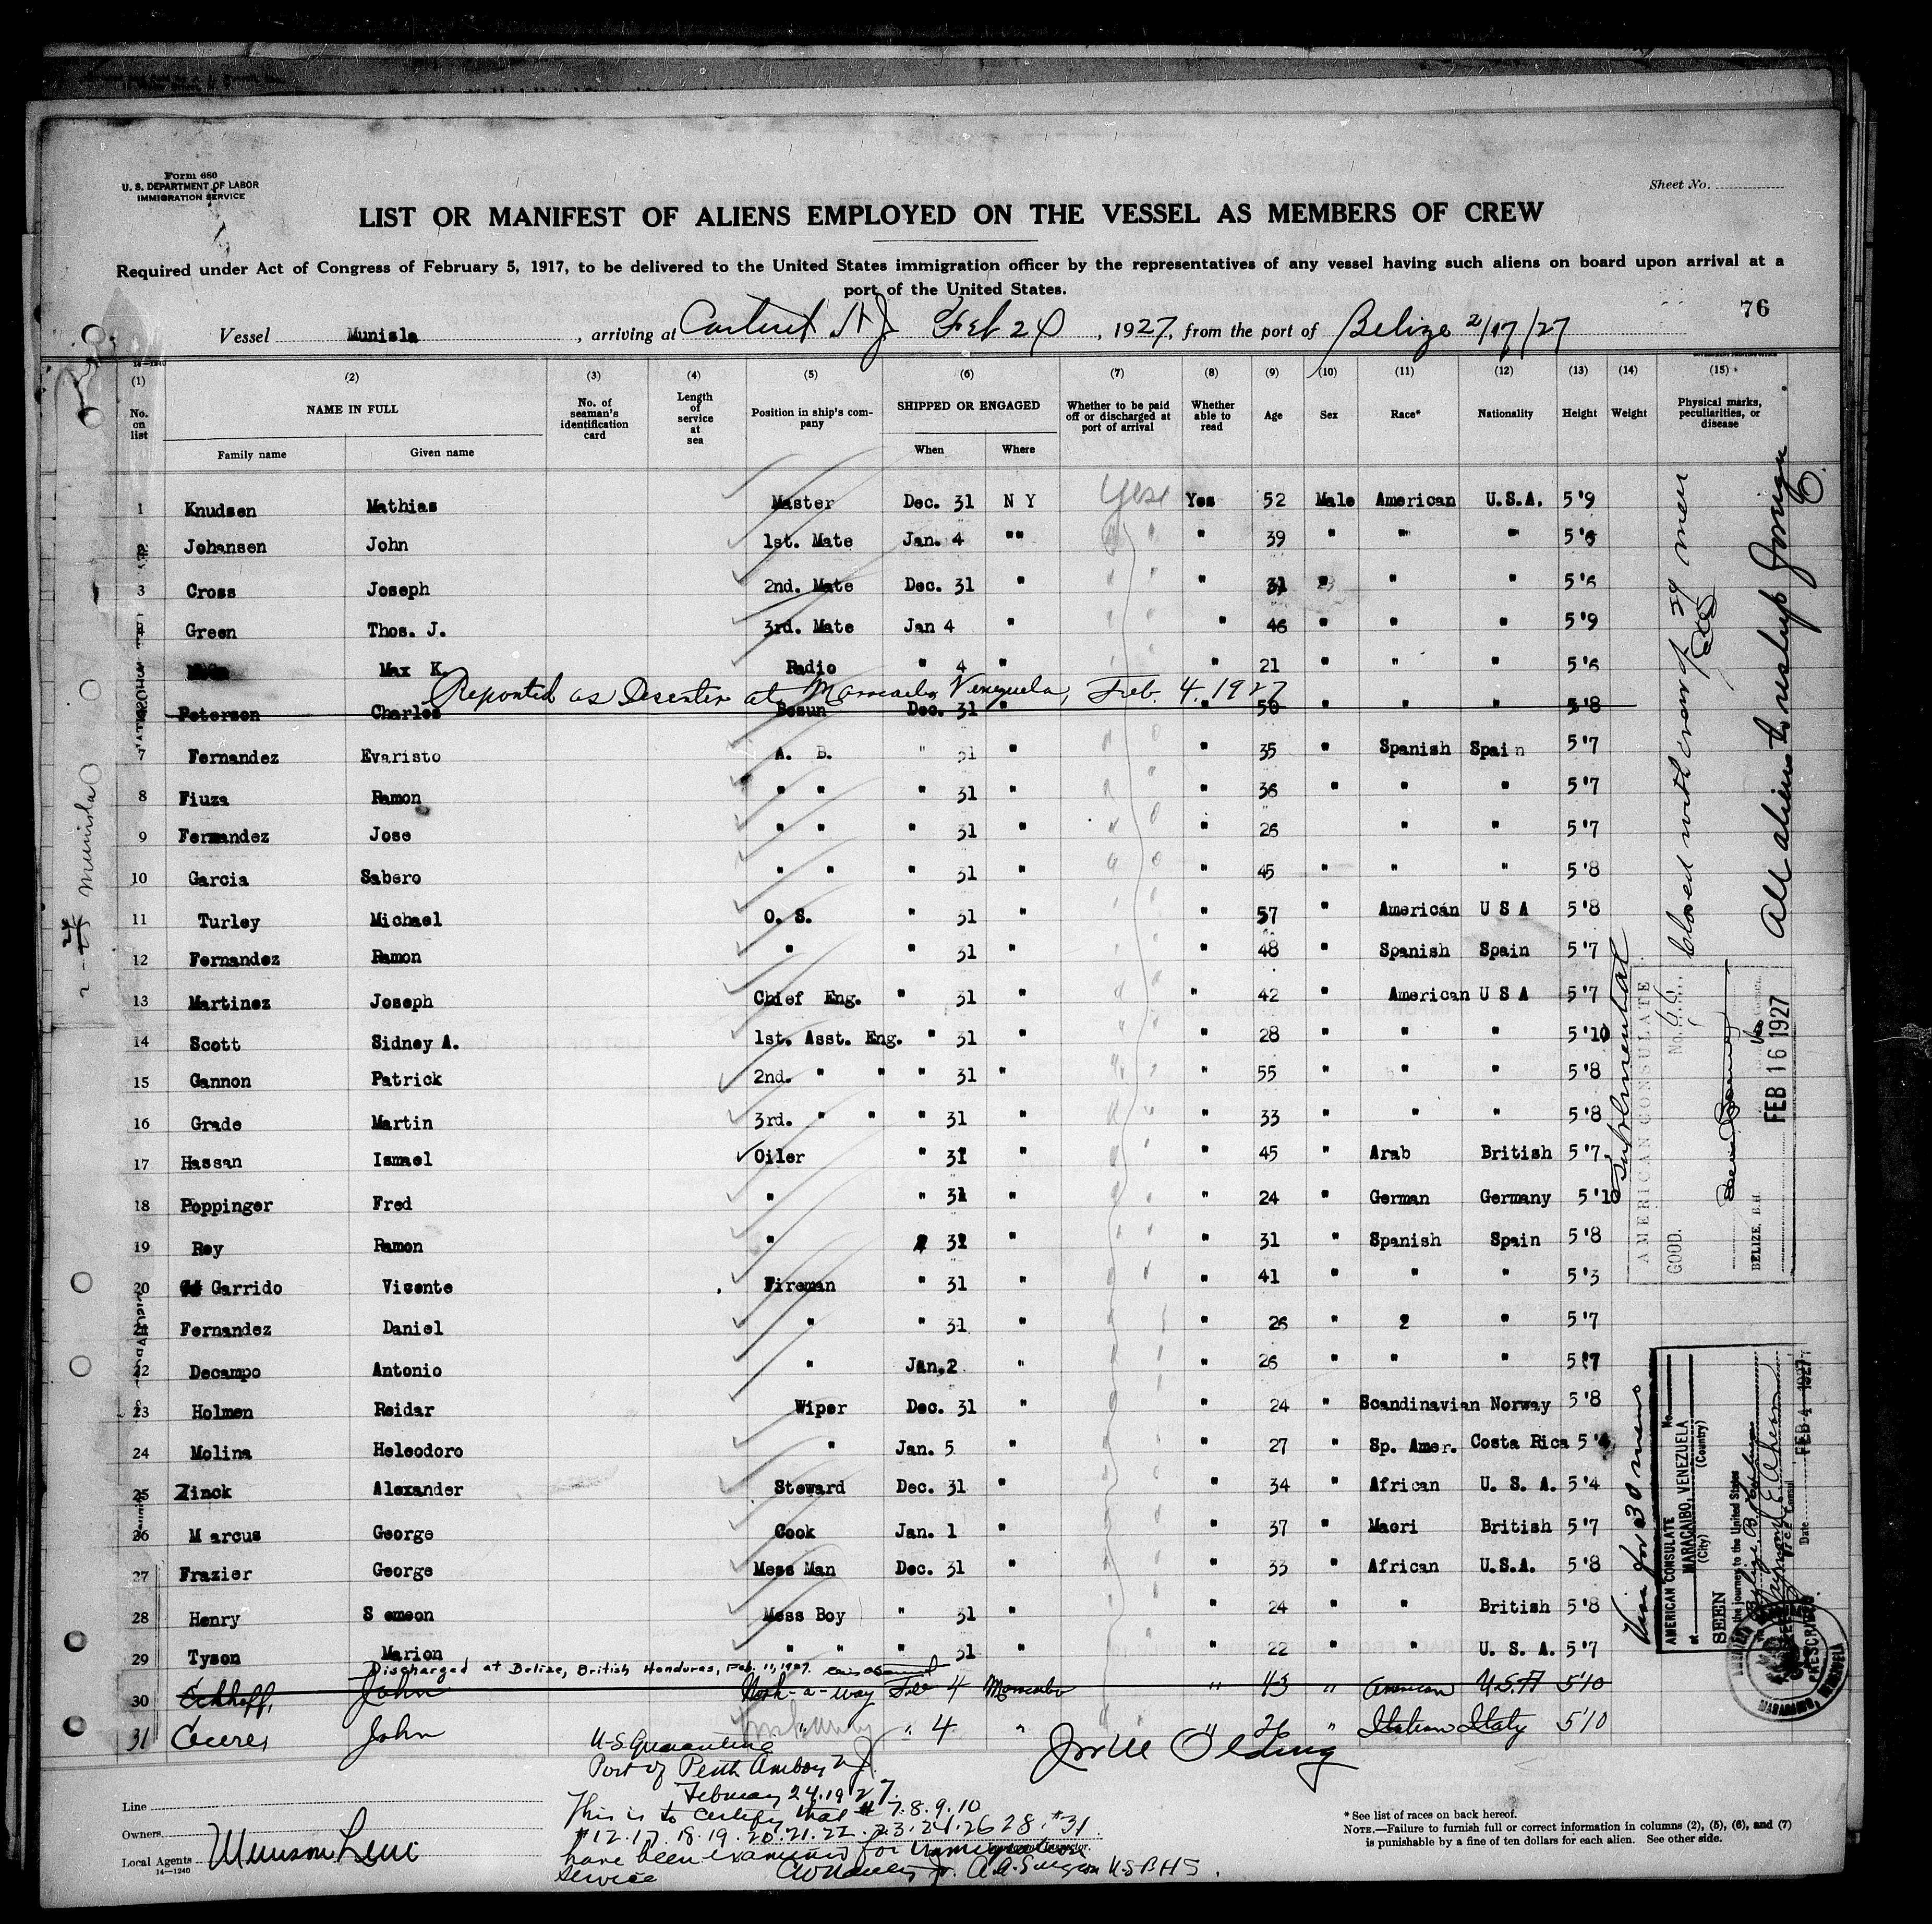 Form 680
U. S. DEPARTMENT OF LABOR
IMMIGRATION SERVICE
Sheet No.
LIST OR MANIFEST OF ALIENS EMPLOYED ON THE VESSEL AS MEMBERS OF CREW
Required under Act of Congress of February 5, 1917, to be delivered to the United States immigration officer by the representatives of any vessel having such aliens on board upon arrival at a
port of the United States.
76
Vessel Munisla, arriving at Carteret N J Feb 24, 1927, from the port of Belize 2/17/27
14—1240
(1) (2) (3) (4) (5) (6) (7) (8) (9) (10) (11) (12) (13) (14) (15)
No. on list NAME IN FULL No. of seaman's identification card Length of service at sea Position in ship's company SHIPPED OR ENGAGED Whether to be paid off or discharged at port of arrival Whether able to read Age Sex Race* Nationality Height Weight Physical marks, peculiarities, or disease
Family name Given name When Where
1 Knudsen Mathias Master Dec. 31 N Y Yes Yes 52 Male American U.S.A. 5'9
Johansen John 1st. Mate Jan. 4 "" " 39 " " " 5'6
3 Cross Joseph 2nd. Mate Dec. 31 " " 31 " " " 5'6
4 Green Thos. J. 3rd. Mate Jan 4 " " 46 " " " 5'9
Max K. Radio " 4 " " 21 " " " 5'6
Reported as Deserter at Maracaibo Venezuela, Feb. 4, 1927
Peterson Charles Bosun Dec. 31 " " 50 " " " 5'8
7 Fernandez Evaristo A. B. " 31 " " 35 " Spanish Spain 5'7
8 Fiuza Ramon " " " 31 " " 36 " " " 5'7
9 Fernandez Jose " " " 31 " " 26 " " 5'7
10 Garcia Sabero " " " 31 " " 45 " " " 5'8
11 Turley Michael O. S. " 31 " " 57 " American U S A 5'8
12 Fernandez Ramon " " 31 " " 48 " Spanish Spain 5'7
13 Martinez Joseph Chief Eng. " 31 " " 42 " American U S A 5'7
14 Scott Sidney A. 1st. Asst. Eng. " 31 " " 28 " " " 5'10
15 Gannon Patrick 2nd. " " " 31 " " 55 " " " 5'8
16 Grade Martin 3rd. " " " 31 " " 33 " " " 5'8
17 Hassan Ismael Oiler " 31 " " 45 " Arab British 5'7
18 Poppinger Fred " " 31 " " 24 " German Germany 5'10
19 Rey Ramon " 31 " " 31 " Spanish Spain 5'8
20 Garrido Vicente Fireman " 31 " " 41 " " " 5'3
21 Fernandez Daniel " " 31 " " 26 " 2 " 5'7
22 Decampo Antonio " Jan.2 " " 26 " " " 5'7
23 Holmen Reidar Wiper Dec. 31 " " 24 " Scandinavian Norway 5'8
24 Molina Heleodoro " Jan. 5 " " 27 " Sp. Amer. Costa Rica 5'4
25 Zinck Alexander Steward Dec. 31 " " 34 " African U. S. A. 5'4
26 M arcus George Cook Jan. 1 " " 37 " Maori British 5'7
27 Frazier George Mess Man Dec. 31 " " 33 " African U.S.A. 5'8
28 Henry S emeon Mess Boy " 31 " " 24 " " British 5'8
29 Tyson Marion " " " 31 " " 22 " " U. S. A. 5'7
Discharged at Belize, British Honduras, Feb. 11, 1927.
30 Eckhoff, John Work-a-way Feb 4 Maracaibo " 43 " American U.S.A 5'10
31 Caceres John " " 4 " " 26 " Italian Italy 5'10
U.S Quarantine
Port of Perth Amboy N J.
February 24, 1927.
This is to certify that # 7.8.9.10
#12.17.18.19.20.21.22.23.24.26 28. #31
have been examined for Immigration
Service
A.A. Surgeon U.S.P.H.S.
Line
Owners
Local Agents Munson Line
14—1240
Immigrant Inspector.
* See list of races on back hereof.
NOTE.—Failure to furnish full or correct information in columns (2), (5), (6), and (7)
is punishable by a fine of ten dollars for each alien. See other side.
Closed with crew of 29 men
All aliens to reship foreign
Supplemental
AMERICAN CONSULATE
No. 66
GOOD.
Vice Consul
BELIZE, B.H.
FEB 16 1927
Visa for 30 men
AMERICAN CONSULATE No.
at MARACAIBO, VENEZUELA
(City) (Country)
SEEN
for the journey to the United States
Vice Consul
Date FEB 4 1927
2 - 24 Munisla